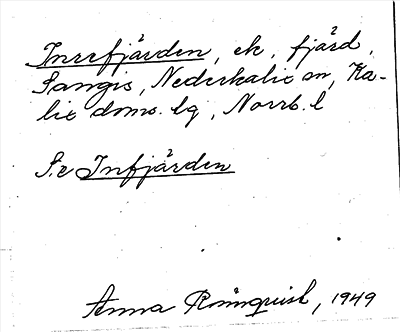 Inrefjärden, ek, fjärd,
Sangis, Nederkalix sn, Ka-
lix doms. lg, Norrb. l
Se Infjärden
Anna Rönnquist, 1949